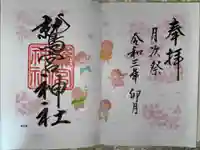 奉拝
月次祭
令和三年 卯月
鷲宮神社